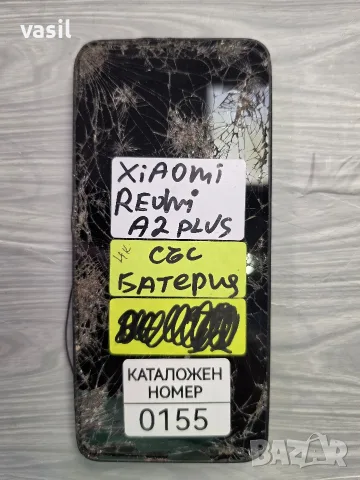 vasil
XiAOmi
REDMI
A2 PLUS
ЧК СЪС
БАТЕРИЯ
КАТАЛОЖЕН
НОМЕР
0155
BAZAR